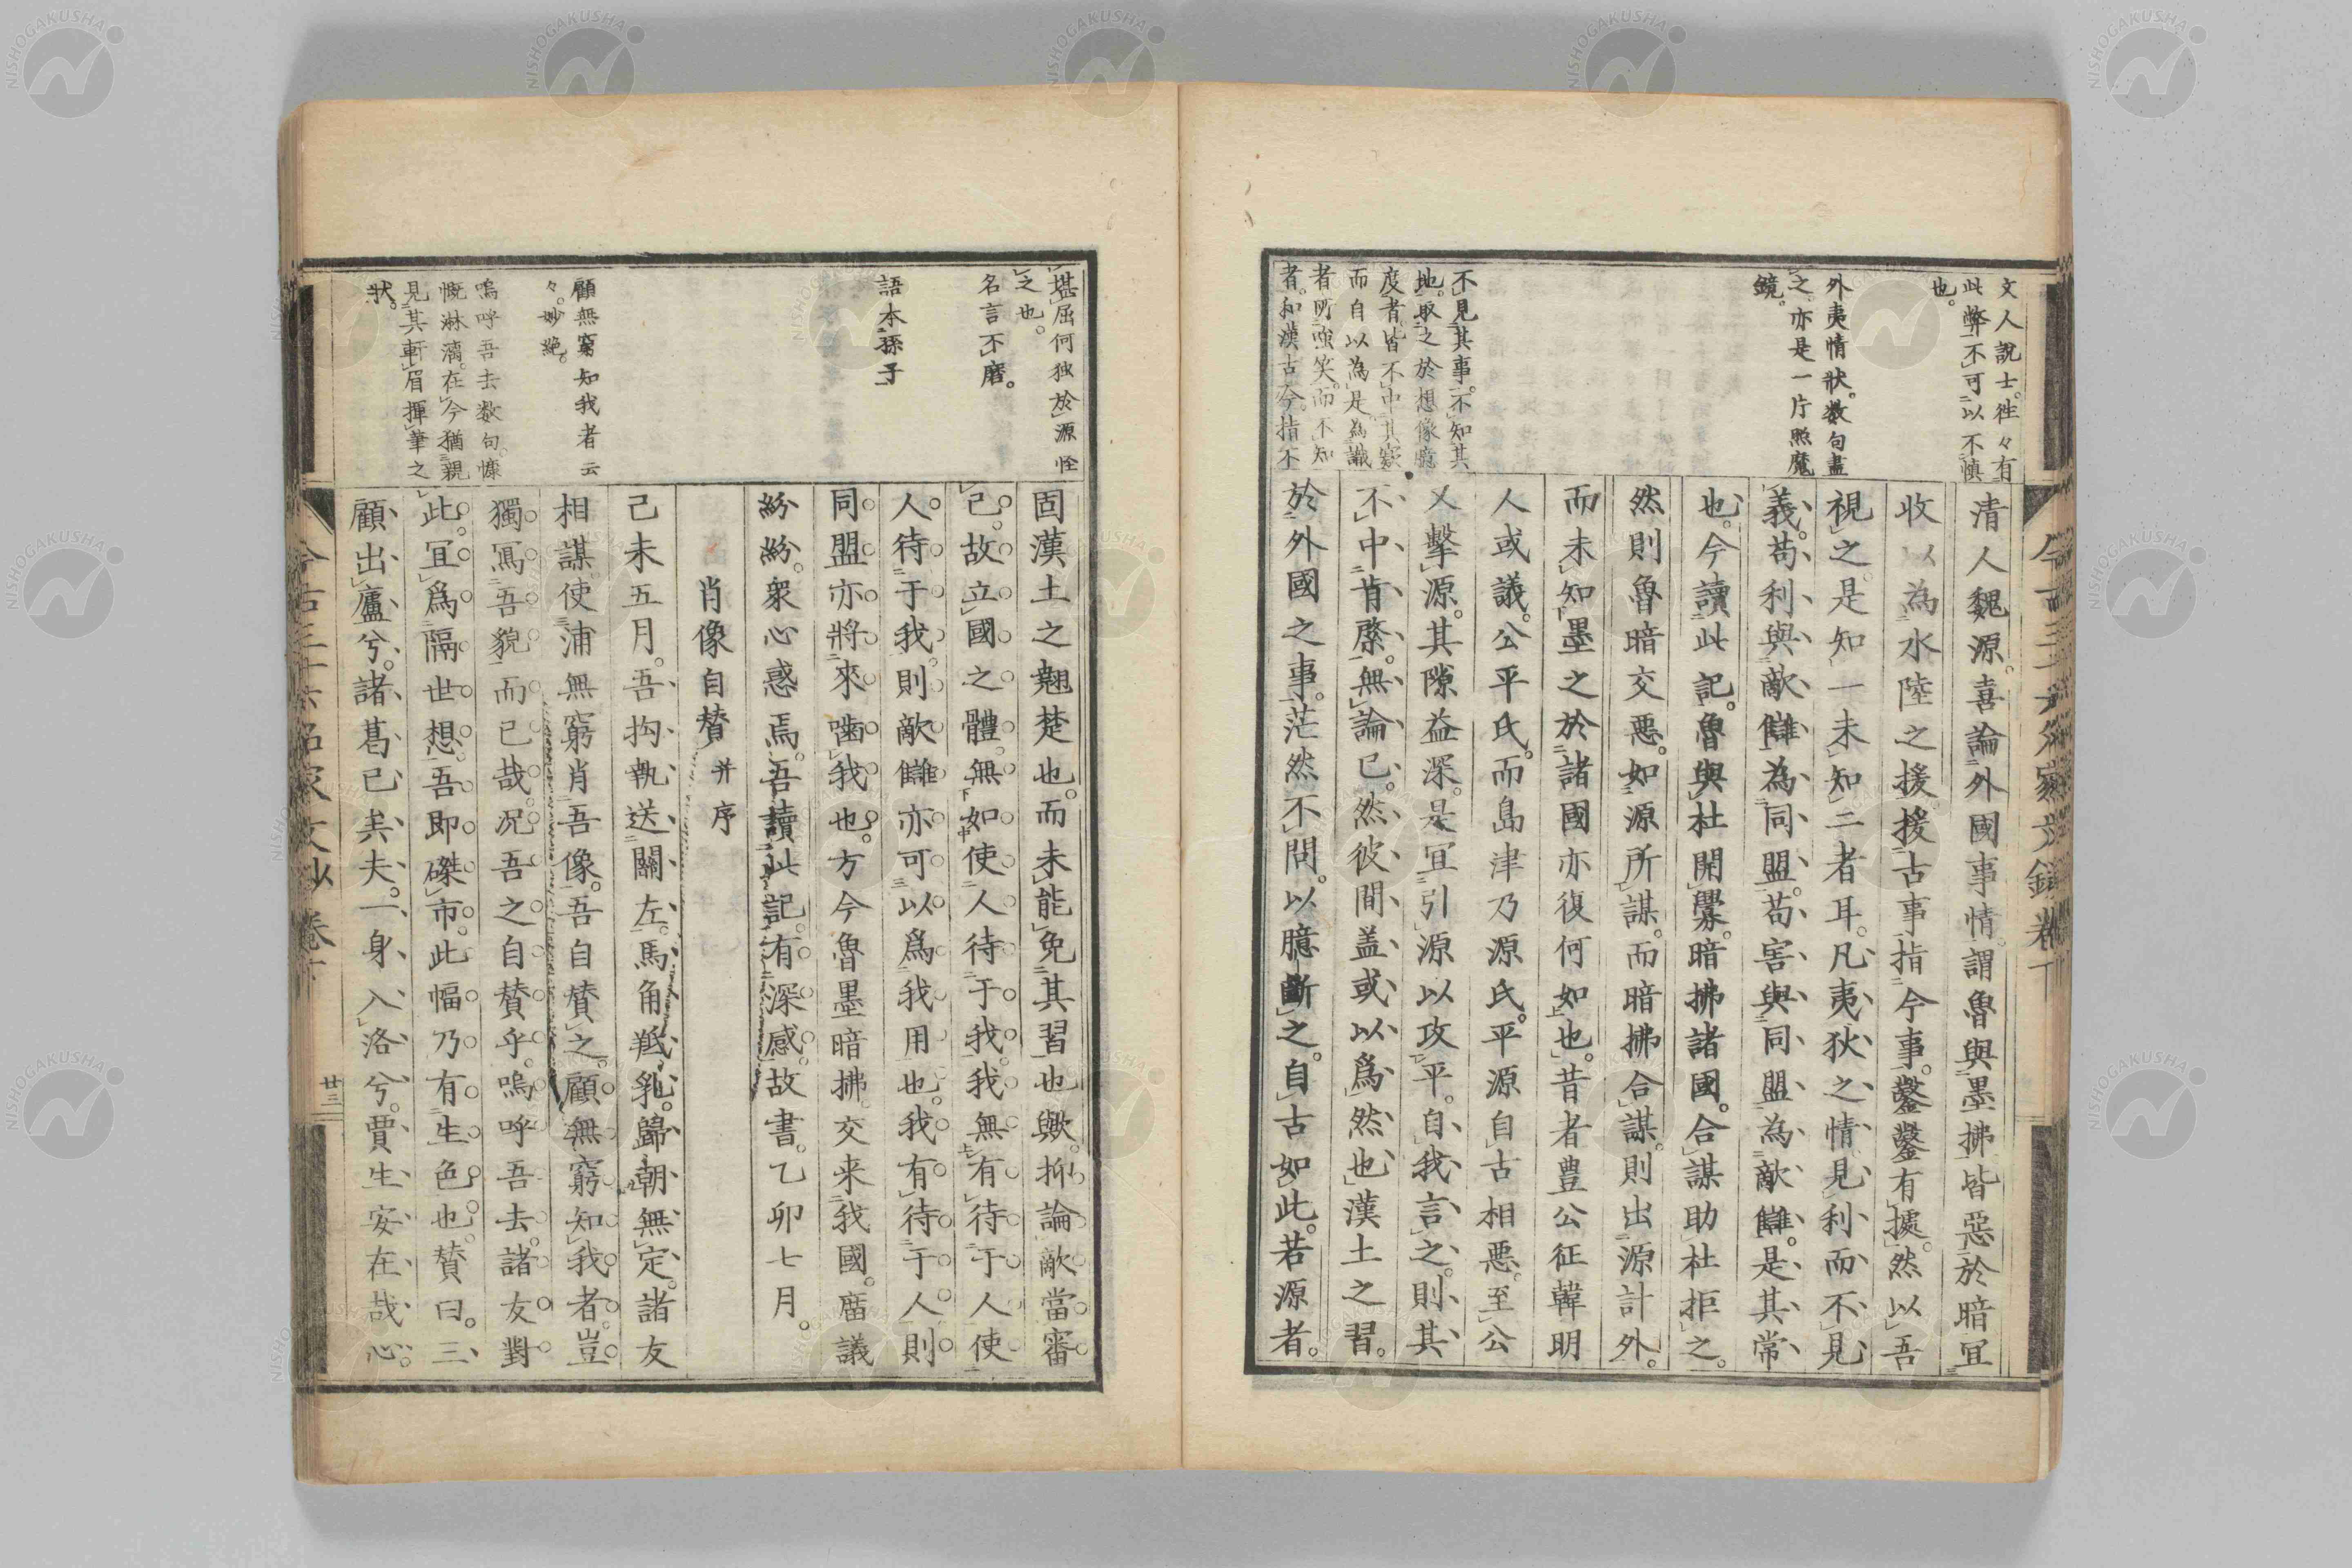 文人說士。往々有
此弊。不可以不慎
也。
外夷情狀。数句盡
之。亦是一片照魔
鏡。
不見其事。不知其
地。取之於想像臆
度者。皆不中其窾
而自以為是。為識
者所嗤笑。而不知
者。和漢古今。指不
清人魏源。喜論外國事情。謂魯與墨拂皆惡於暗。宜
收以為水陸之援。援古事指今事。鑿鑿有據。然以吾
視之。是知一未知二者耳。凡夷狄之情。見利而不見
義。苟利與敵讎為同盟。苟害與同盟為敵讎。是其常
也。今讀此記。魯與杜開釁。暗拂諸國。合謀助杜拒之。
然則魯暗交惡。如源所謀。而暗拂合謀。則出源計外。
而未知墨之於諸國亦復何如也。昔者豊公征韓明
人或議。公平氏。而島津乃源氏。平源自古相惡。至公
乂擊源。其隙益深。是宜引源以攻平。自我言之。則其
不中肯綮。無論已。然彼間盖或以爲然也。漢土之習。
於外國之事。茫然不問。以臆斷之。自古如此。若源者。
堪屈何独於源怪
之也。
名言不磨。
語本孫子
顧無窮知我者云
々。妙絶。
嗚呼吾去数句。慷
慨淋漓。在今猶親
見其軒眉揮筆之
狀。
固漢土之翹楚也。而未能免其習也歟。抑論敵當審
己。故立國之體。無如使人待于我。我無有待于人。使
人待于我。則敵讎亦可以爲我用也。我有待于人。則
同盟亦將來噬我也。方今魯墨暗拂。交来我國。廟議
紛紛。衆心惑焉。吾讀此記。有深感。故書。乙卯七月。
肖像自賛并序
己未五月。吾拘執送關左。馬角羝乳。歸朝無定。諸友
相謀。使浦無窮肖吾像。吾自賛之。顧無窮知我者。豈
獨寫吾貌而已哉。况吾之自賛乎。嗚呼吾去。諸友對
此。宜爲隔世想。吾即磔市。此幅乃有生色也。賛曰。三
顧出廬兮。諸葛已矣夫。一身入洛兮。賈生安在哉。心
今古三十六名家文抄 卷下
廿三
NISHOGAKUSHA